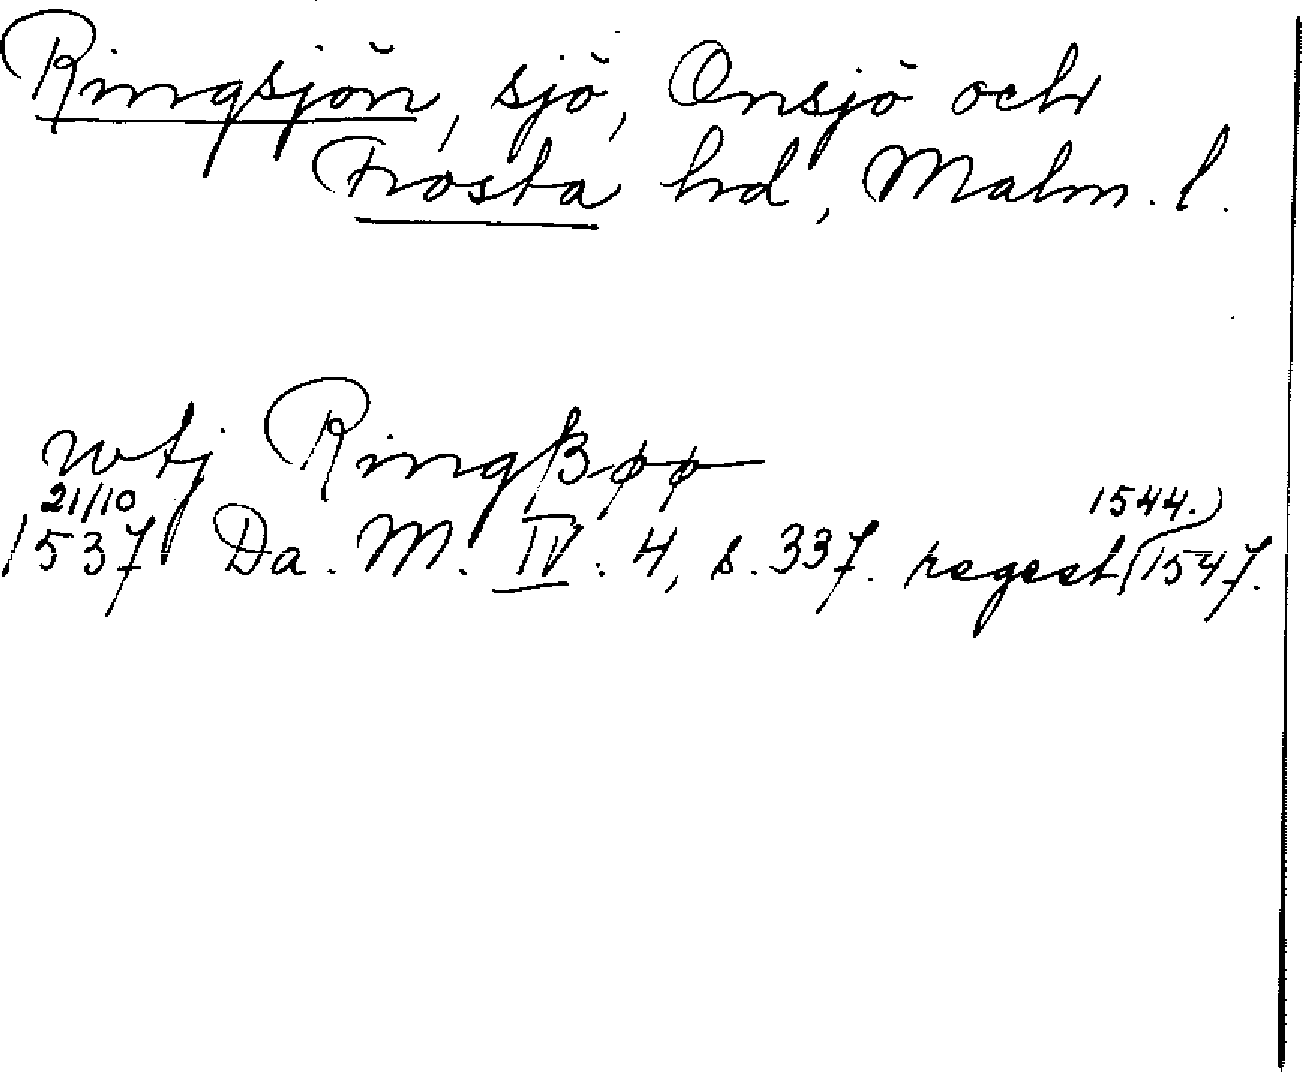 Ringsjön, sjö, Onsjö och
Frosta hrd, Malm. l.
wtj Ringßøø
21/10
1537 Da. M. IV. 4, s. 337. regest (1547.
1544.)